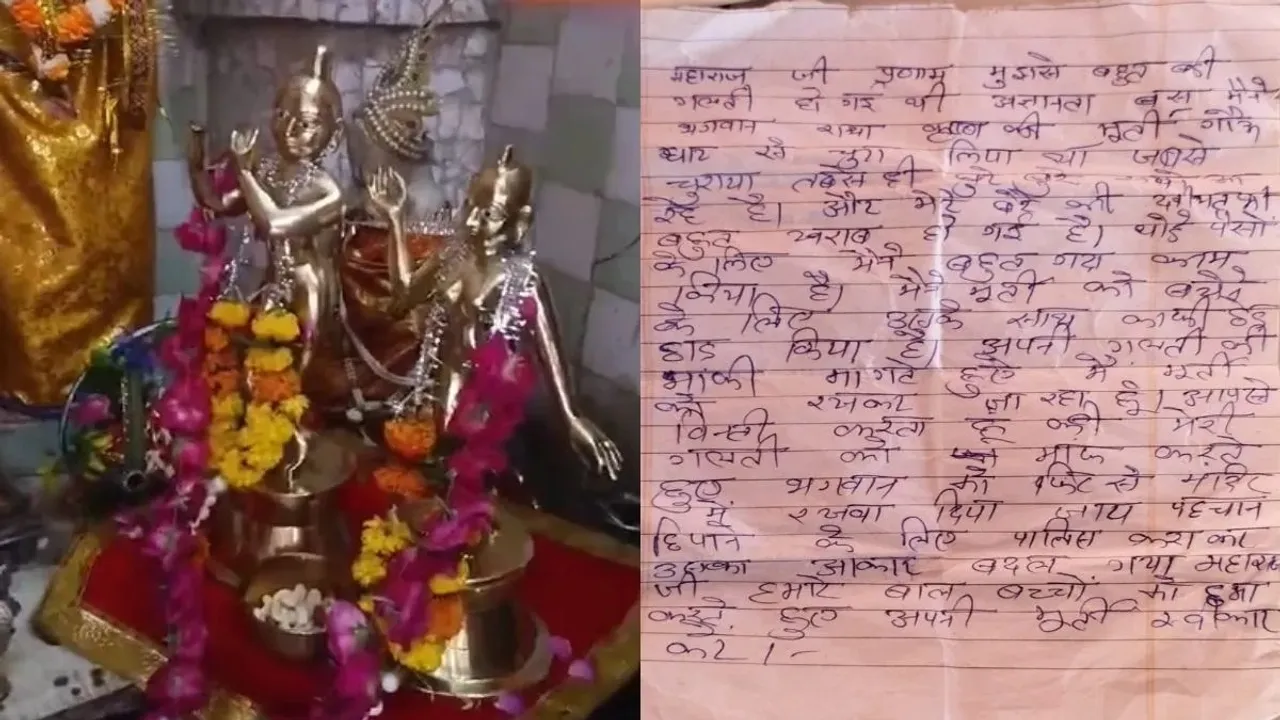 महाराज जी प्रणाम मुझसे बहुत की
गलती हो गई थी अज्ञानता बस मैने
भगवान राधा कृष्ण की मूर्ती गौऊ
घाट से चुरा लिया था जबसे
चुराया तबसे ही बुरे
रहे है। और मेरे बेटे की
बहुत खराब हो गई है। थोडे पैसो
के लिए मैने बहुत गंदा काम
किया है। मैने मूर्ती को बेचने
के लिए उसके साथ काफी छेडे
छाड किया है। अपनी गलती की
मांफी मागते हुए मै मूर्ती
को रखकर जा रहा हूं। आपसे
विन्ती करता हूं की मेरी
गलती को माफ करते
हुए भगवान को फिर से मंदिर
में रखवा दिया जाय पहचान
छिपाने के लिए पालिस कराकर
उसका आकार बदल गया महाराज
जी हमारे बाल बच्चो को क्षमा
करते हुए अपनी मूर्ती स्वीकार
करे ।-